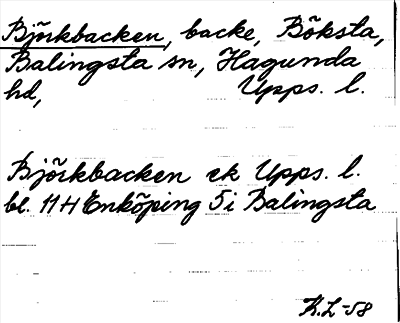 Björkbacken, backe, Böksta,
Balingsta sn, Hagunda
hd, Upps. l.
Björkbacken ek Upps. l.
bl. 11H Enköping 5i Balingsta
K.L-58